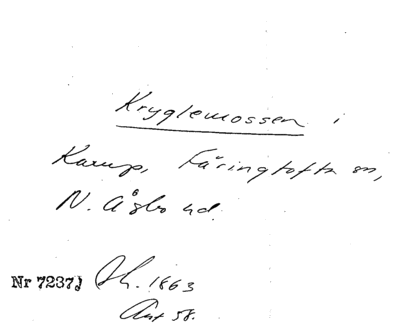 Kryglemossen i
Karup, Färingtofta sn,
N. Åsbo hd.
Nr 7237) Sk. 1863
Ant 58.